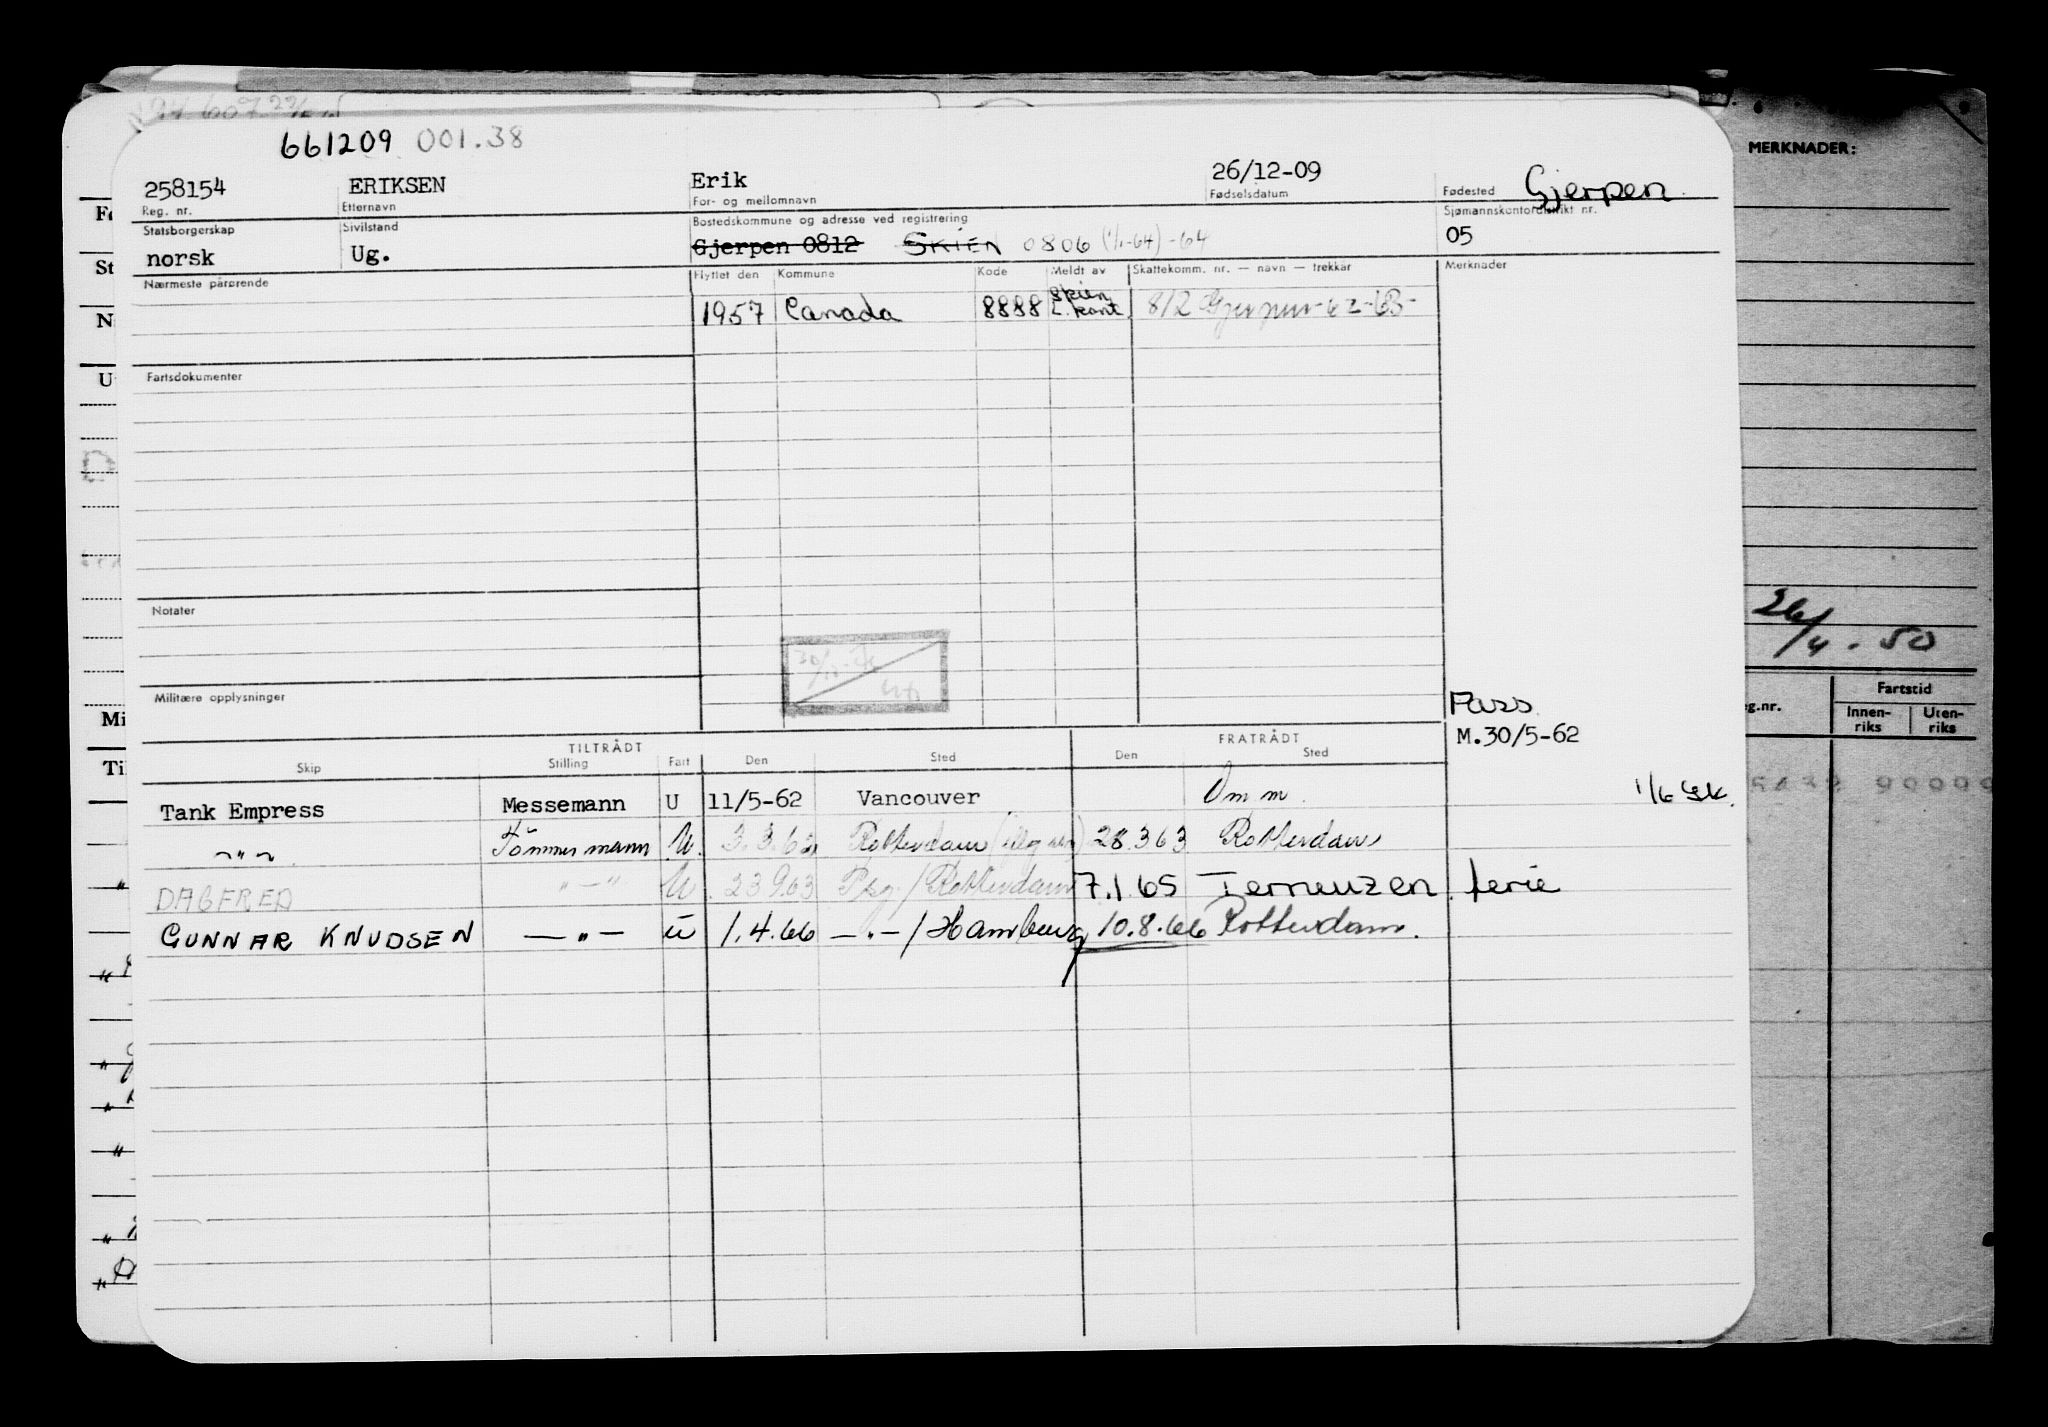 661209 001.38
258154 ERIKSEN Erik 26/12-09 Gjerpen
Reg. nr. Etternavn For- og mellomnavn Fødselsdatum Fødested
Statsborgerskap Sivilstand Bostedskommune og adresse ved registrering Sjømannskontordistrikt nr.
norsk Ug. Gjerpen 0812 SKIEN 0806 (1/1-64) -64 05
Nærmeste pårørende Flyttet den Kommune Kode Meldt av Skattekomm. nr. — navn — trekkår Merknader
1957 Canada 8888 Skien L. kont. 812 Gjerpen-62-63-
Fartsdokumenter
Notater
Militære opplysninger
Pass
M.30/5-62
TILTRÅDT FRATRÅDT
Skip Stilling Fart Den Sted Den Sted
Tank Empress Messemann U 11/5-62 Vancouver Om m. 1/6 Gk.
—"— Tömmermann U. 3.3.62 Rotterdam 28.3 63 Rotterdam
DAGFRED "—" U 23 9 63 Psg./Rotterdam 7.1.65 Terneuzen ferie
GUNNAR KNUDSEN —"— U 1.4.66 —"—/Hamburg 10.8.66 Rotterdam.
MERKNADER:
26/4-50
Fartstid
Innen-riks Uten-riks